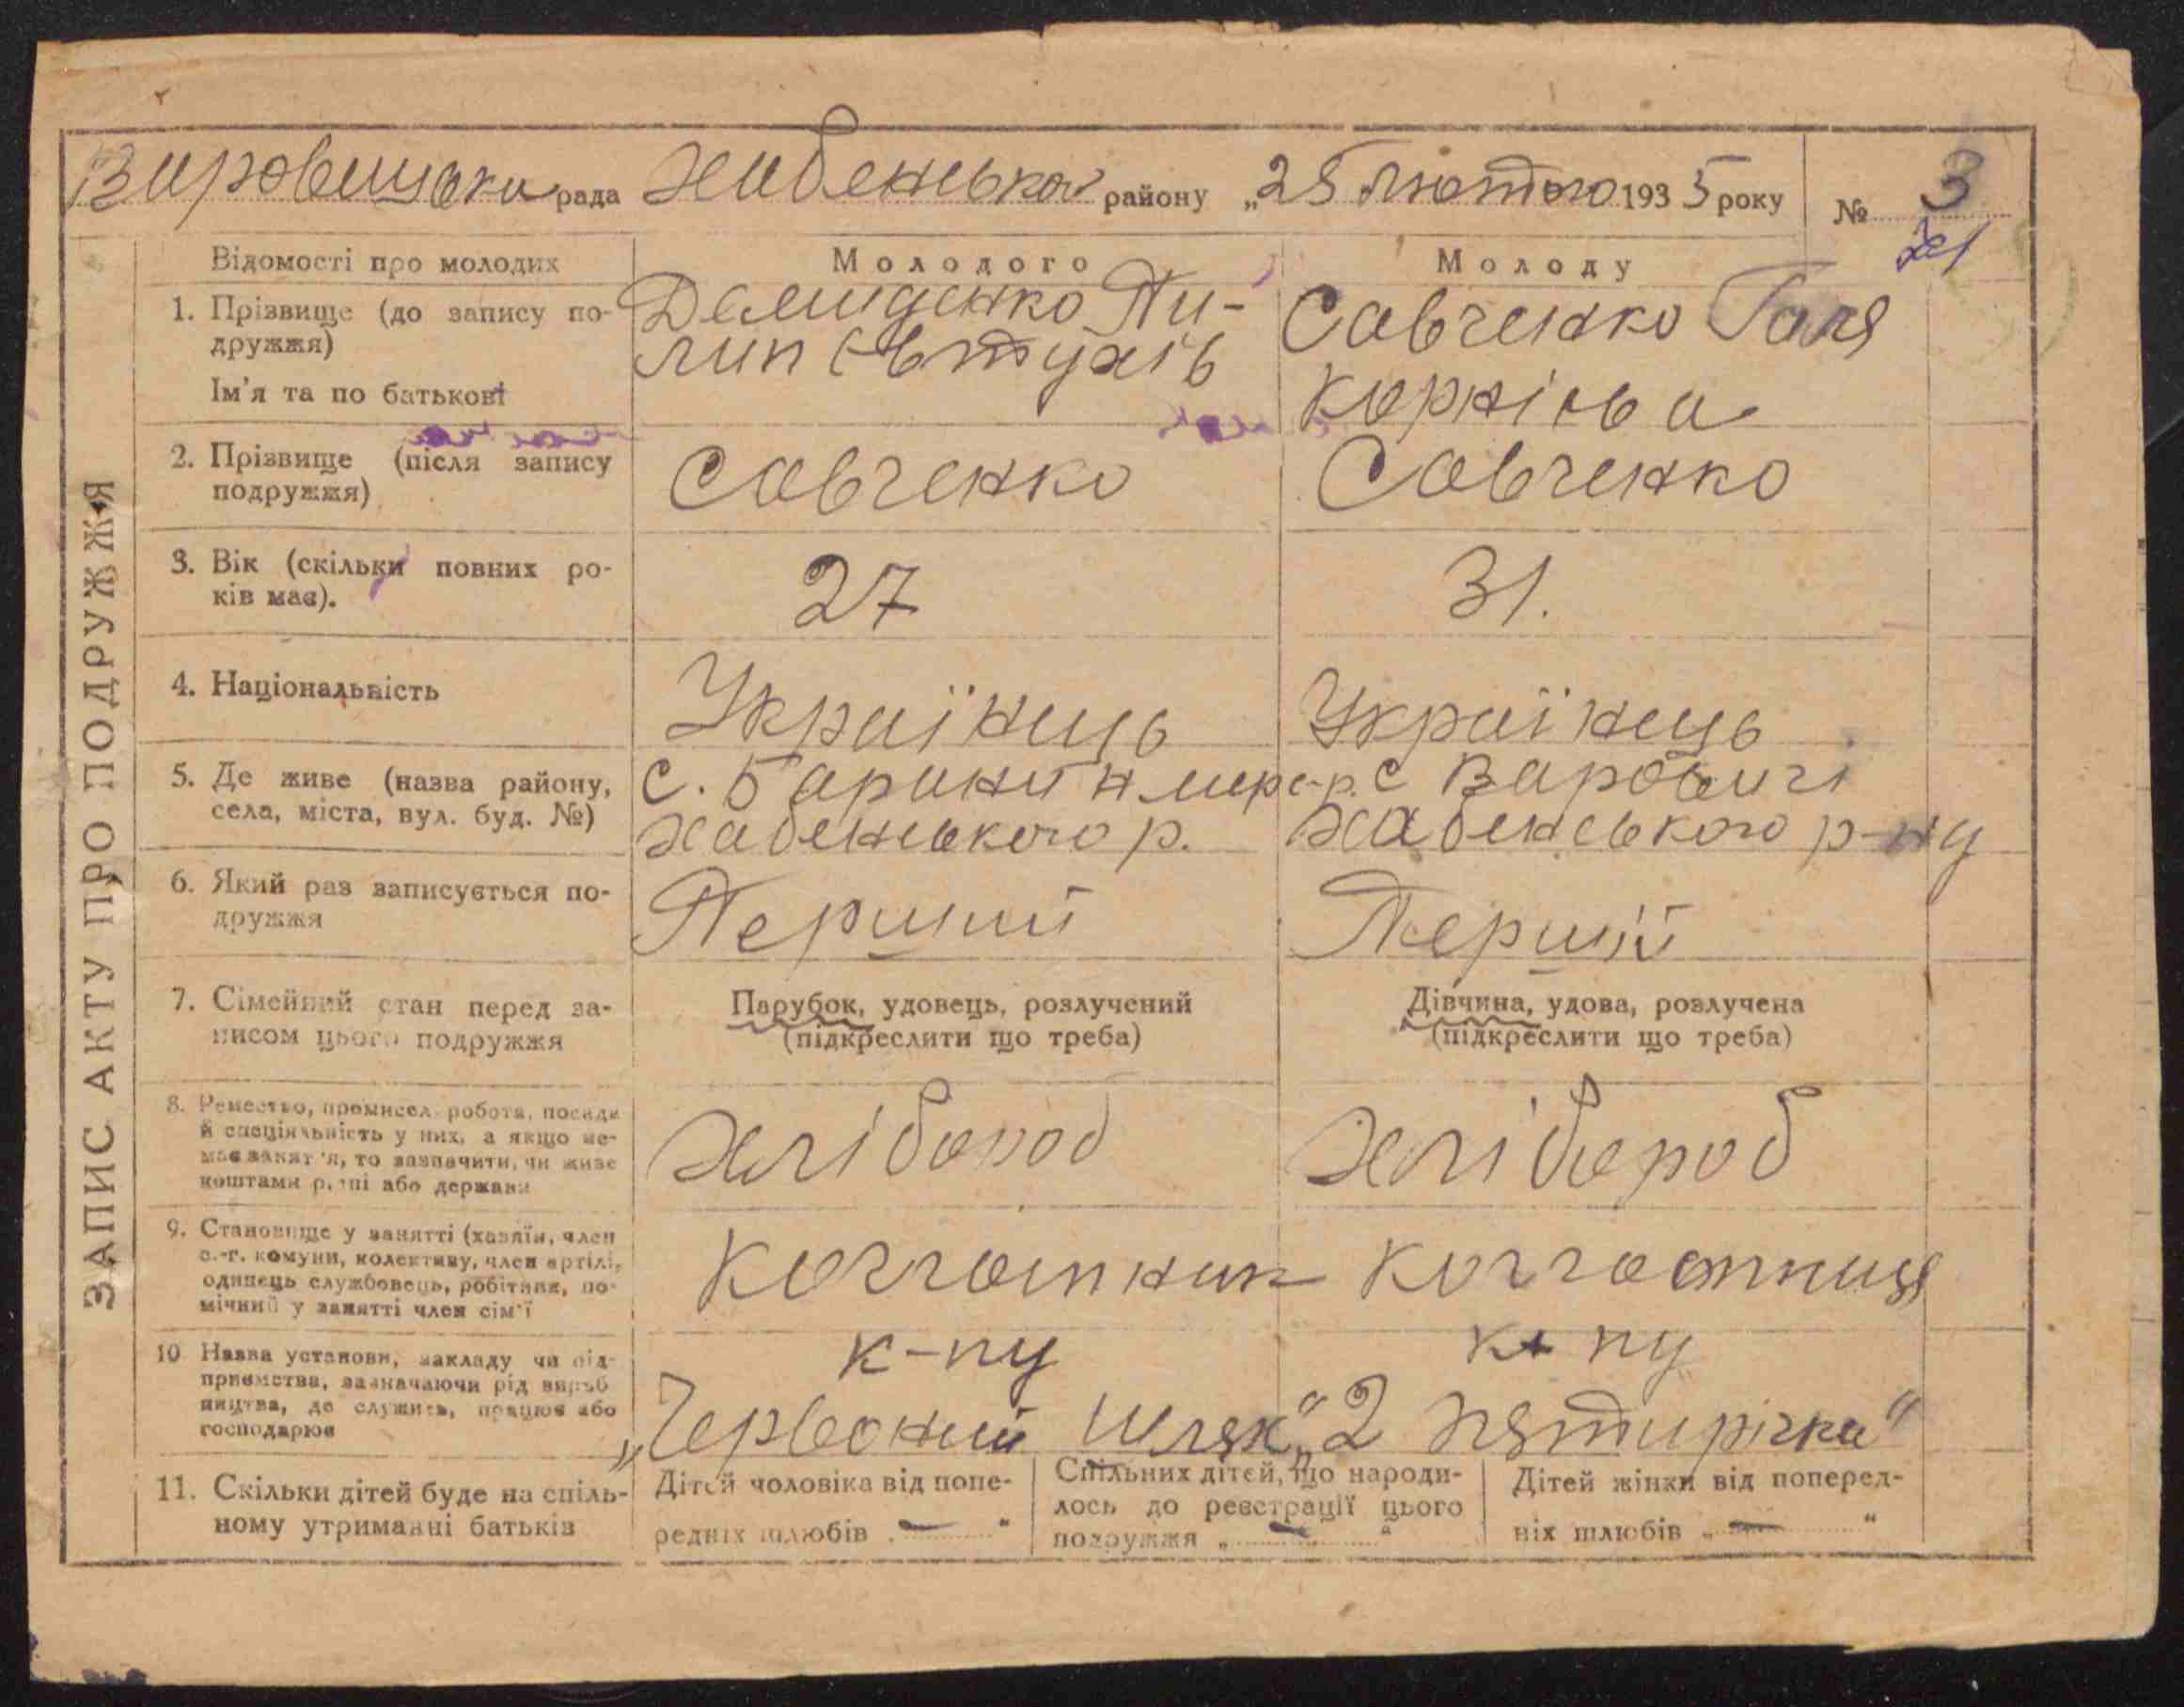 Варовицька рада Хабенького району „25 Лютого 1935 року № 3
ЗАПИС АКТУ ПРО ПОДРУЖЖЯ
Відомості про молодих
Молодого
Молоду
1. Прізвище (до запису по-
дружжя)
Ім'я та по батькові
Демиденко Пи-
лип Євтухів
Савченко Галя
Корнієва
2. Прізвище (після запису
подружжя)
Савченко
Савченко
3. Вік (скільки повних ро-
ків має).
27
31.
4. Національність
Українець
Українець
5. Де живе (назва району,
села, міста, вул. буд. №)
с.
Хабенського р.
с Варовичі
Хабенського р-ну
6. Який раз записується по-
дружжя
Перший
Перший
7. Сімейний стан перед за-
писом цього подружжя
Парубок, удовець, розлучений
(підкреслити що треба)
Дівчина, удова, розлучена
(підкреслити що треба)
8. Ремество, промисел, робота, посада
й спеціяльність у них, а якщо не-
має заняття, то зазначити, чи живе
коштами рідні або держави
хлібороб
хлібороб
9. Становище у занятті (хазяїн, член
с.-г. комуни, колективу, член артілі,
одинець службовець, робітник, по-
мічний у занятті член сім'ї
Колгоспник
Колгоспниця
10 Назва установи, закладу чи під-
приємства, зазначаючи рід вироб
ництва, де служить, працює або
господарює
к-пу
„Червоний Шлях“
к-пу
„2 пятирічка“
11. Скільки дітей буде на спіль-
ному утриманні батьків
Дітей чоловіка від попе-
редніх шлюбів „ — “
Спільних дітей, що народи-
лось до реєстрації цього
подружжя „ — “
Дітей жінки від поперед-
ніх шлюбів „ — “